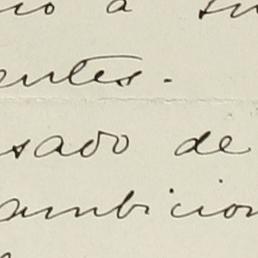 a su
entes.
sado de
ambicion